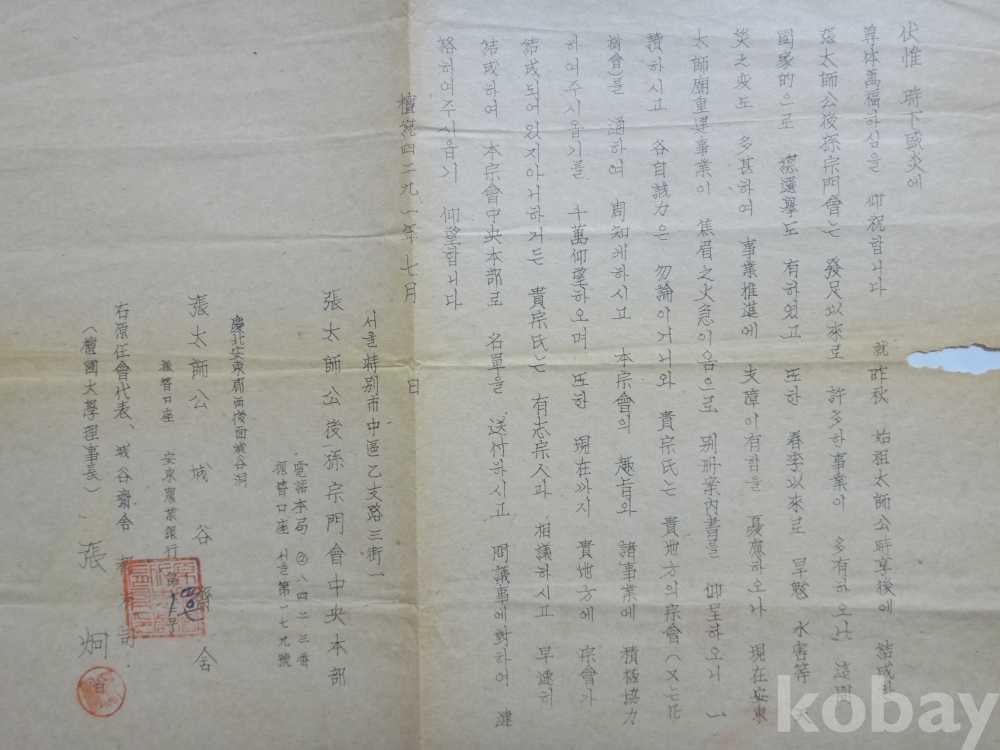 伏惟 時下盛炎에
尊体萬福하심을 仰祝합니다 就昨秋 始祖太師公時享後에 結成된
張太師公後孫宗門會는 發足以來로 許多한事業이 多有하오나 這間
國家的으로 總選擧도 有하였고 또한 春季以來로 旱魃 水害等
災変도 多甚하여 事業推進에 支障이有함을 憂慮하오나 現在安東
太師廟重建事業이 焦眉之火急이옴으로 別冊案內書를 仰呈하오니 一
讀하시고 各自誠力은 勿論이거니와 貴宗氏는 貴地方의宗會(又는花
樹會)를 通하여 周知케하시고 本宗會의 趣旨와 諸事業에 積極協力
하여주시옵기를 千萬仰望하오며 또한 現在까지 貴地方에 宗會가
結成되어있지아니하거든 貴宗氏는 有志宗人과 相議하시고 早速히
結成하여 本宗會中央本部로 名單을 送付하시고 問議事에對하여 連
絡하여주시옵기 仰望합니다
檀紀四二九一年 七月 日
서울特別市中區乙支路三街一
張太師公後孫宗門會中央本部
電話本局②八四二三番
振替口座 서울第一七九號
慶北安東郡西後面城谷洞
張太師公 城谷齋舍
振替口座 安東農業銀行第 号
右原任會代表、城谷齋舍 有司
(檀國大學理事長) 張 炯
kobay